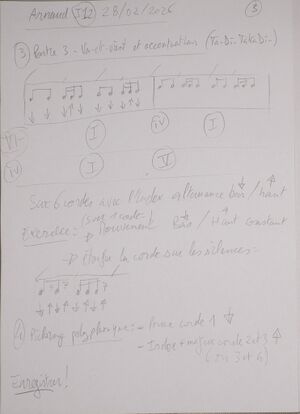 Arnaud I12 28/02/2026 3
3 Partie 3 - Va-et-vient et accentuation (Ta-Di- TakaDi-)
VI- I iv I
iv I V
Sur 6 cordes avec l'index alternance bas / haut
(sur 1 corde
Exercice: Mouvement Bas / Haut constant
→ Étouffe la corde sur les silences
4 Picking polyphonique: - Pouce corde 1
- Index + majeur corde 2 et 3
(ou 3 et 4)
Enregistrer!